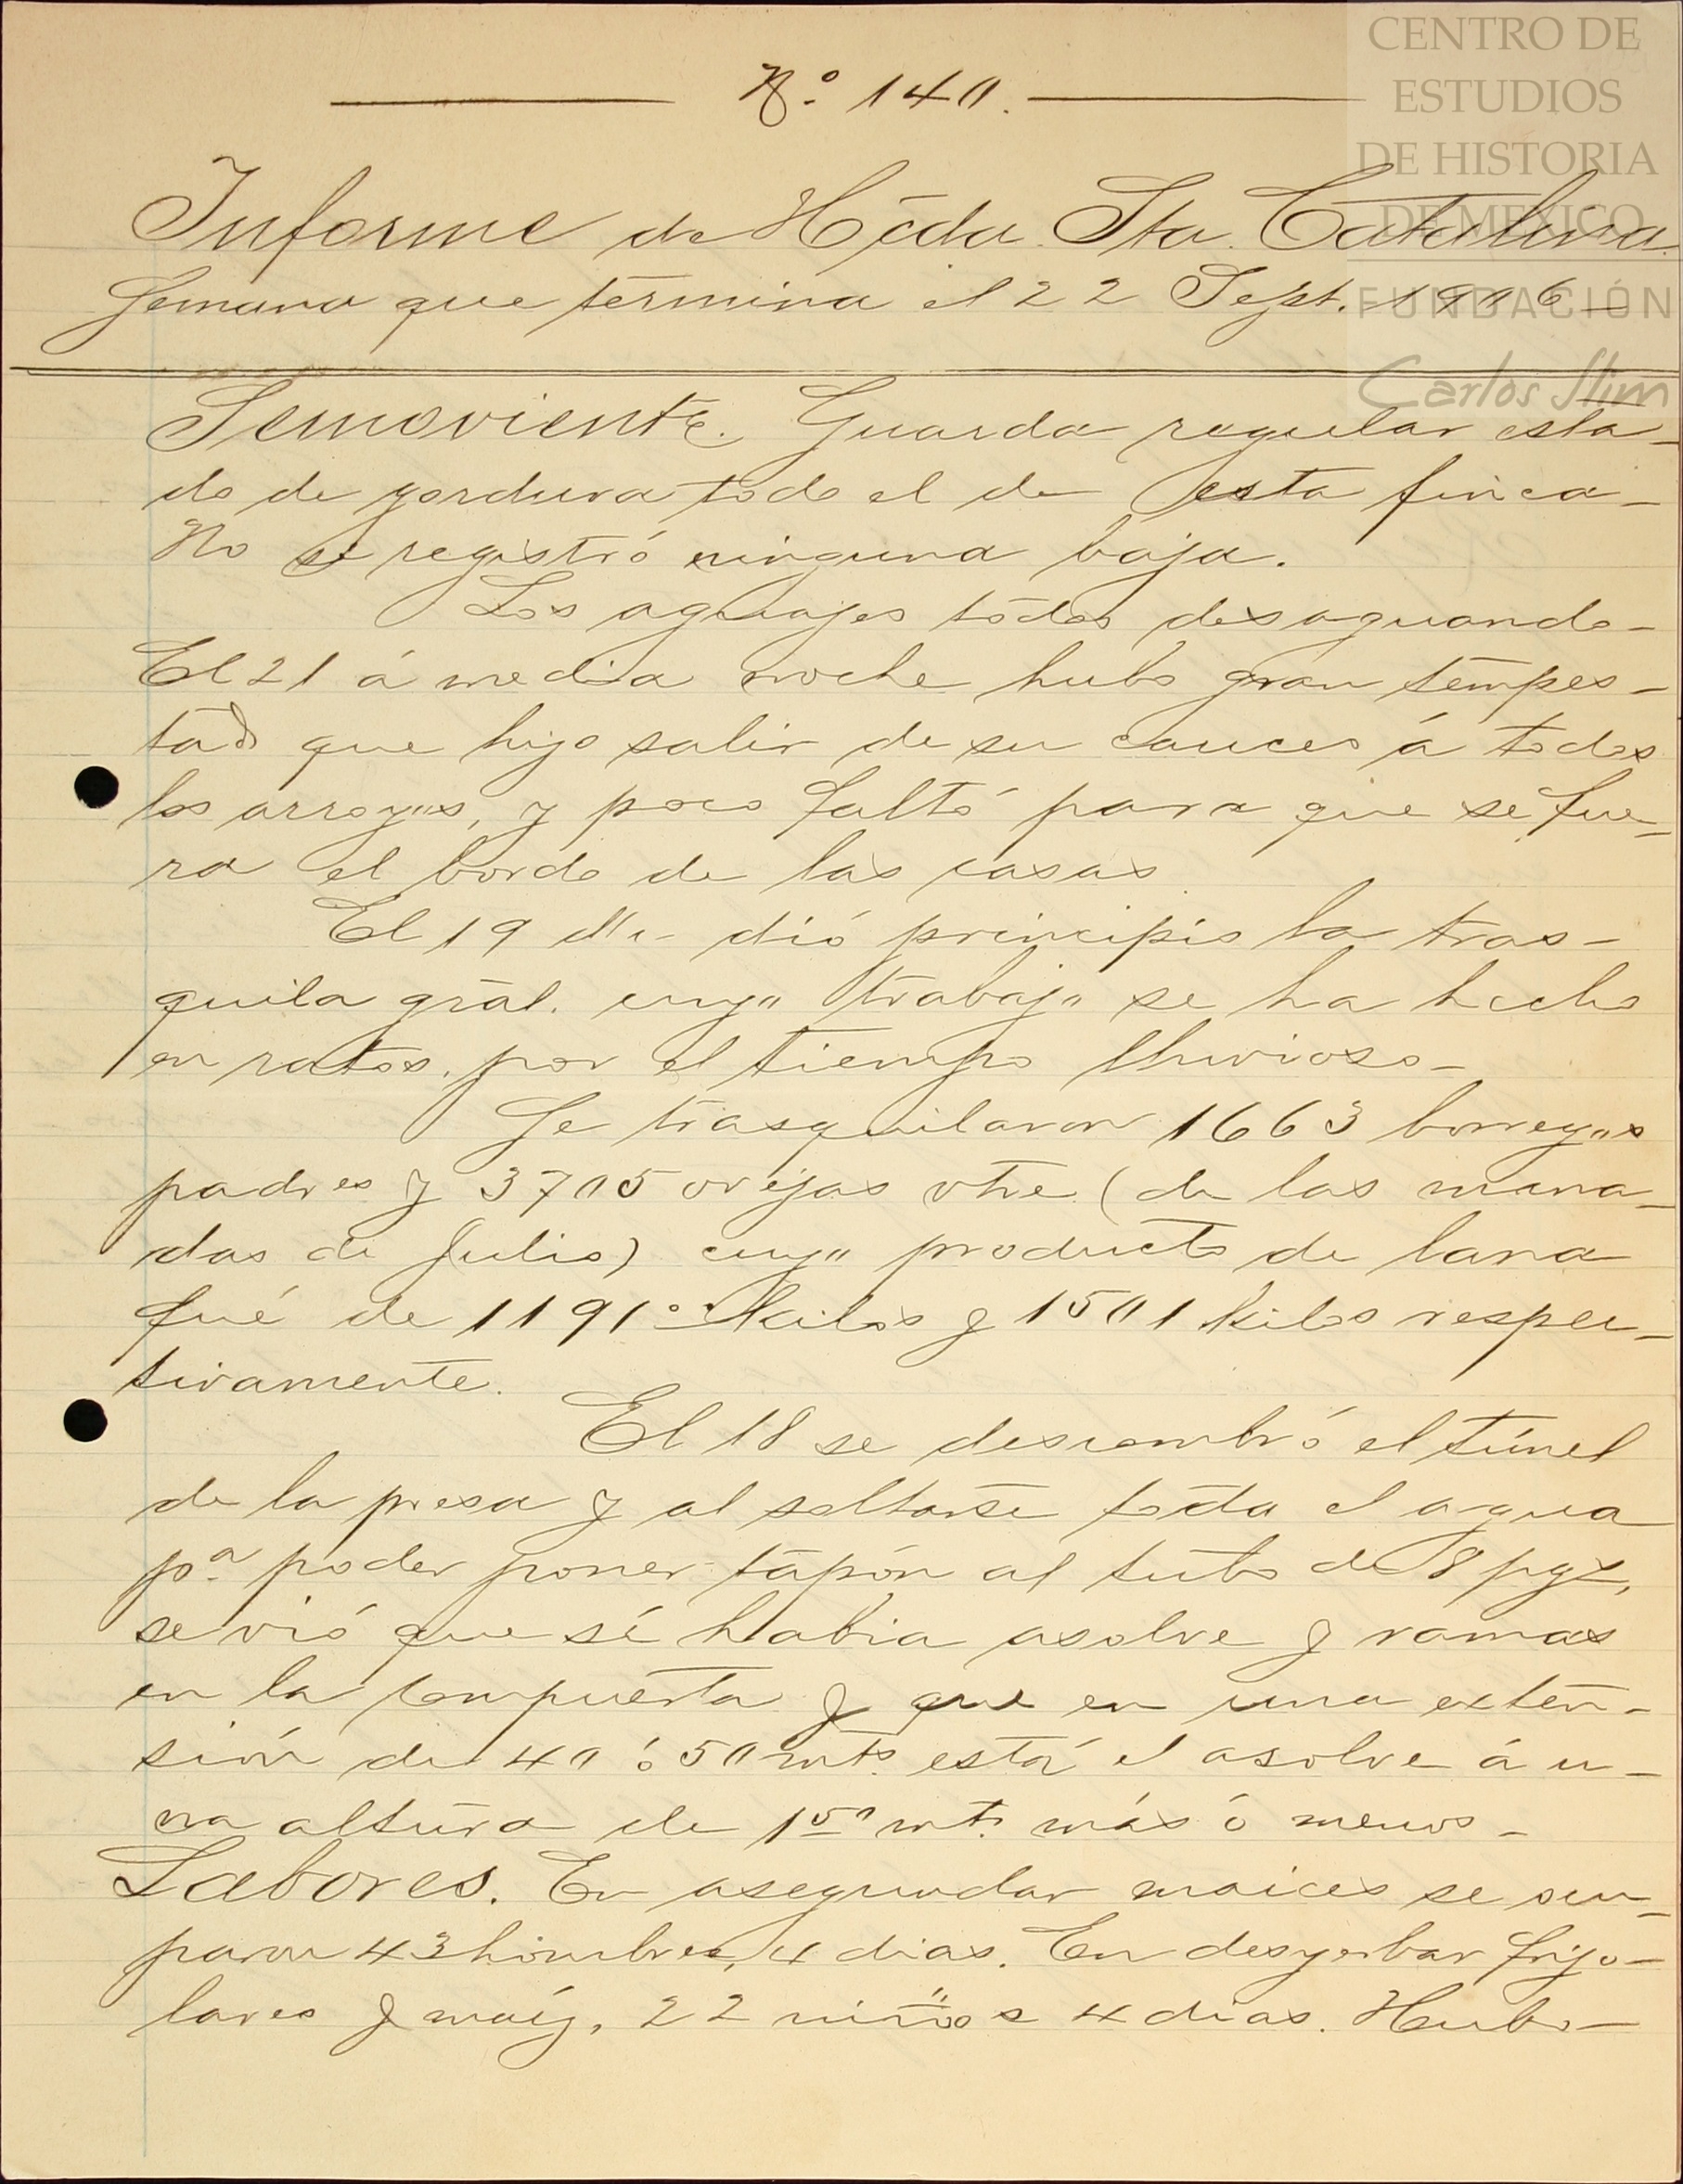 Nº 140.
CENTRO DE
ESTUDIOS
DE HISTORIA
DE MEXICO
FUNDACIÓN
Carlos Slim
Informe de Hcda. Sta. Catalina
Semana que termina el 22 Sept. 1906—
Semoviente. Guarda regular esta-
do de gordura todo el de esta finca-
No se registró ninguna baja.
Los aguajes todos desaguando-
El 21 á media noche hubo gran tempes-
tad que hizo salir de su cauces á todos
los arroyos, y poco faltó para que se fue-
ra el bordo de las casas
El 19 dió principio la tras-
quila gral. cuyo trabajo se ha hecho
en ratos, por el tiempo lluvioso-
Se trasquilaron 1663 borregos
padres y 3705 ovejas vtre. (de las mana-
das de Julio) cuyo producto de lana
fué de 1191 kilos y 1501 kilos respec-
tivamente.
El 18 se descombró el túnel
de la presa y al soltarse toda el agua
pª poder poner tapón al tubo de 8 pgs,
se vió que sí habia asolve y ramas
en la compuerta y que en una exten-
sión de 40 ó 50 mts. está el asolve á u-
na altura de 1 50 mt. más ó menos-
Labores. En asegundar maices se ocu-
paron 43 hombres, 4 dias. En desyerbar frijo-
lares y maíz, 22 niños 4 dias. Hubo-